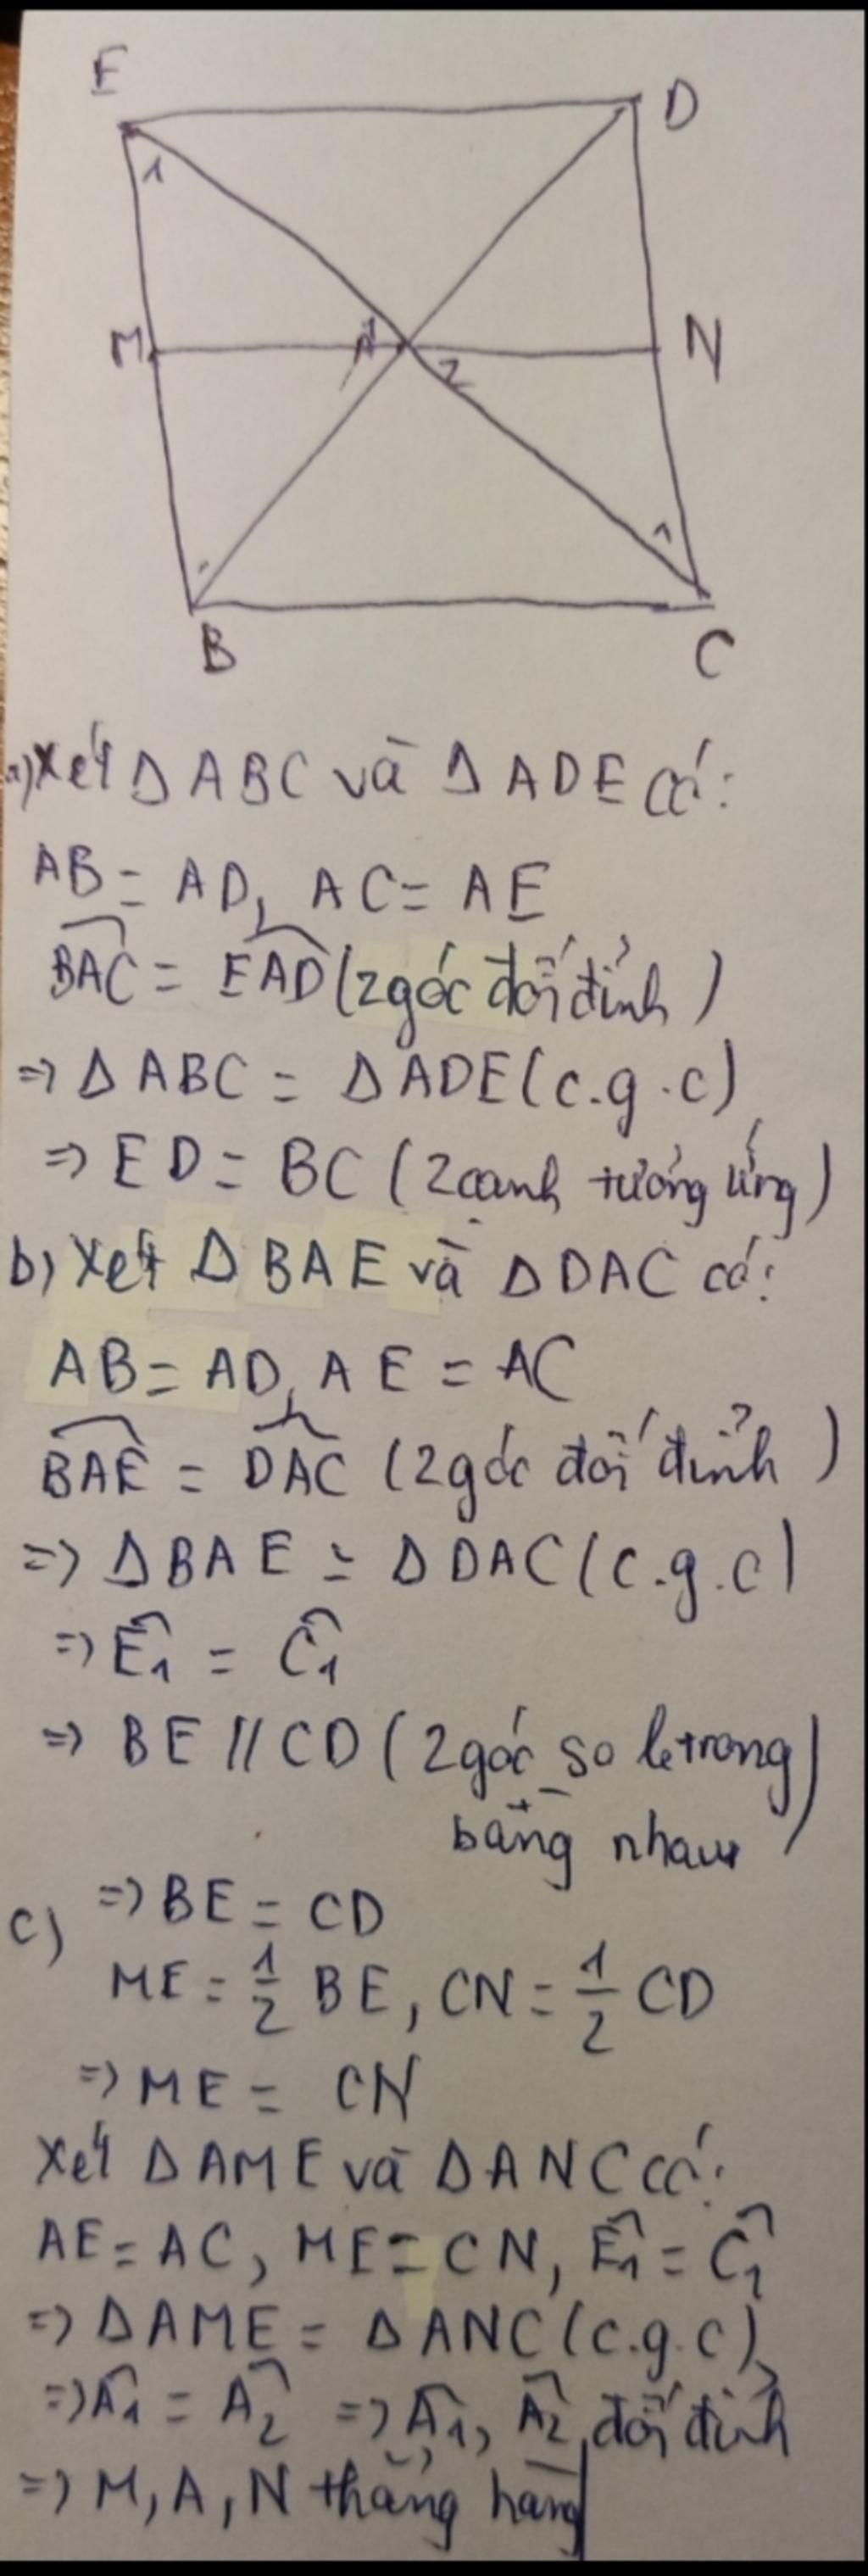 E
D
1
M
A 1
2
N
1
B
C
a) Xét Δ ABC và Δ ADE có:
AB = AD, AC = AE
\widehat{BAC} = \widehat{EAD} (2 góc đối đỉnh)
=> Δ ABC = Δ ADE (c.g.c)
=> ED = BC (2 cạnh tương ứng)
b) Xét Δ BAE và Δ DAC có:
AB = AD, AE = AC
\widehat{BAE} = \widehat{DAC} (2 góc đối đỉnh)
=> Δ BAE = Δ DAC (c.g.c)
=> \widehat{E_1} = \widehat{C_1}
=> BE // CD (2 góc so le trong
bằng nhau)
c) => BE = CD
ME = \frac{1}{2} BE, CN = \frac{1}{2} CD
=> ME = CN
Xét Δ AME và Δ ANC có:
AE = AC, ME = CN, \widehat{E_1} = \widehat{C_1}
=> Δ AME = Δ ANC (c.g.c)
=> \widehat{A_1} = \widehat{A_2} => \widehat{A_1}, \widehat{A_2} đối đỉnh
=> M, A, N thẳng hàng